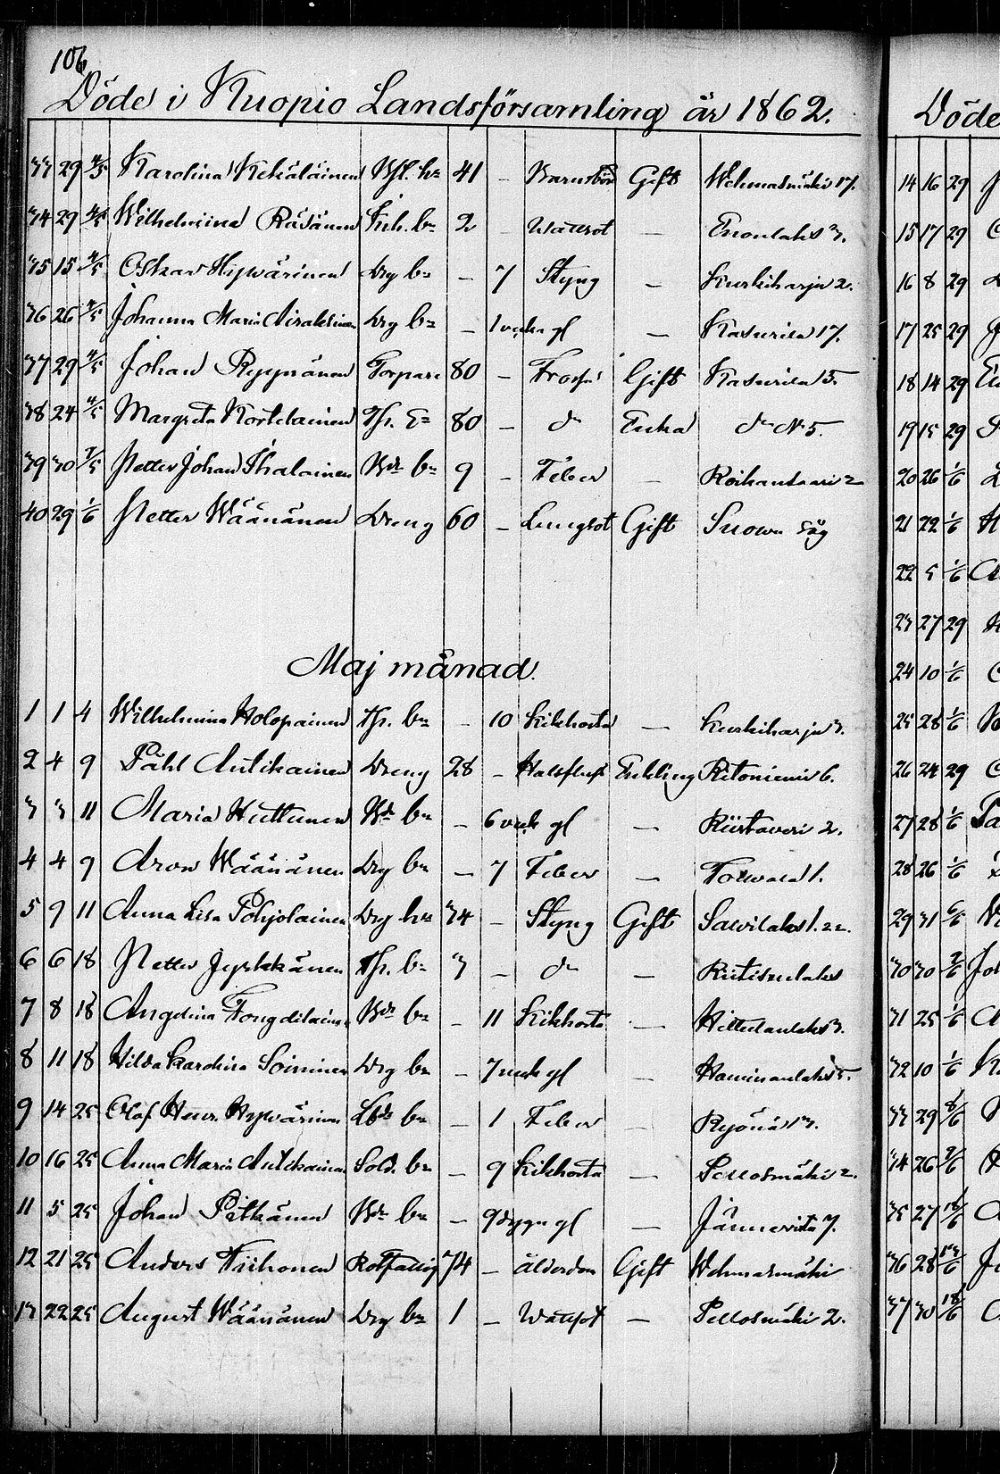 106
Döde i Kuopio Landsförsamling år 1862.
33 29 4/5 Karolina Kekäläinen hu 41 – Barnsbörd Gift Wehmasmäki 17.
34 29 4/5 Wilhelmina Räsänen Inh. bn 2 – Wattsot – Enonlaks 3.
35 15 4/5 Oskar Hyvärinen Drg bn – 7 Styng – Kurkiharju 2.
36 26 4/5 Johanna Maria Drg bn – 1 vecka gl – Kasurila 17.
37 29 4/5 Johan Ryynänen Torpare 80 – Gift Kasurila 15.
38 24 4/5 Margreta Kortelainen 80 – do Enka do N 5.
39 30 7/5 Petter Johan Ihalainen Bde bn 9 – Feber – Roikansaari 2
40 29 1/6 Petter Wäänänen Dreng 60 – Lungsot Gift
Maj månad.
1 1 4 Wilhelmina Holopainen bn – 10 Kikhosta – Kurkiharju 3.
2 4 9 Påhl Antikainen Dreng 28 – Halsfluss Enkling Ritoniemi 6.
3 3 11 Maria Huttunen Bde bn – 6 veck gl – Riistavesi 2.
4 4 9 Aron Wäänänen Drg bn – 7 Feber – Toivala 1.
5 9 11 Anna Lisa Pohjolainen Drg hu 34 – Styng Gift Savilaks 1.
6 6 18 Petter Jeskanen bn 3 – do –
7 8 18 Angelina Bde bn – 11 Kikhosta – Hiltulanlaks 3.
8 11 18 Hilda Karolina Soininen Drg bn – 7 veck gl – Haminanlaks 5.
9 14 25 Olof Henr. Hyvärinen bn – 1 Feber – 13.
10 16 25 Anna Maria Antikainen Sold. bn – 9 Kikhosta – Pellosmäki 2.
11 5 25 Johan Pitkänen Bde bn – 9 dygn gl – Jännevirta 7.
12 21 25 Anders Tiihonen Rotfattig 74 – ålderdom Gift Wehmasmäki
13 22 25 August Wäänänen Drg bn 1 – Wattsot – Pellosmäki 2.
Döde
14 16 29
15 17 29
16 8 29
17 25 29
18 14 29
19 15 29
20 26 1/6
21 22 1/6
22 5 1/6
23 27 29
24 10 1/6
25 28 1/6
26 24 29
27 28 1/6
28 26 1/6
29 31 6/6
30 30 7/6
31 25 1/6
32 10 1/6
33 29 8/6
34 26 9/6
35 27
36 28
37 30